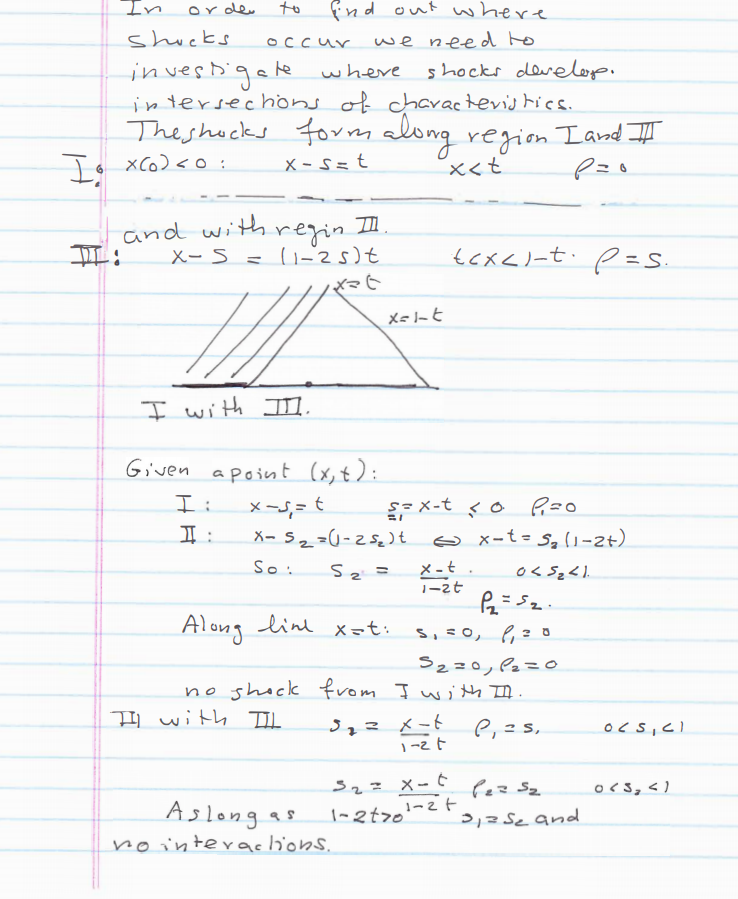 In order to find out where
shocks occur we need to
investigate where shocks develop.
intersections of characteristics.
The shocks form along region I and III
I: x(0) < 0 : x - s = t x < t ρ = 0
and with regin III.
III: x - s = (1-2s)t t < x < 1-t. ρ = s.
x=t
x=1-t
I with III.
Given a point (x,t):
I : x - s₁ = t s₁ = x-t < 0 ρ₁ = 0
II : x - s₂ = (1-2s₂)t ⇔ x-t = s₂(1-2t)
So : s₂ = x-t / 1-2t . 0 < s₂ < 1.
ρ₂ = s₂.
Along line x=t: s₁ = 0, ρ₁ = 0
s₂ = 0, ρ₂ = 0
no shock from I with III.
III with III s₂ = x-t / 1-2t ρ₁ = s₁ 0 < s₁ < 1
s₂ = x-t / 1-2t ρ₂ = s₂ 0 < s₂ < 1
As long as 1-2t>0 s₁ = s₂ and
no interactions.